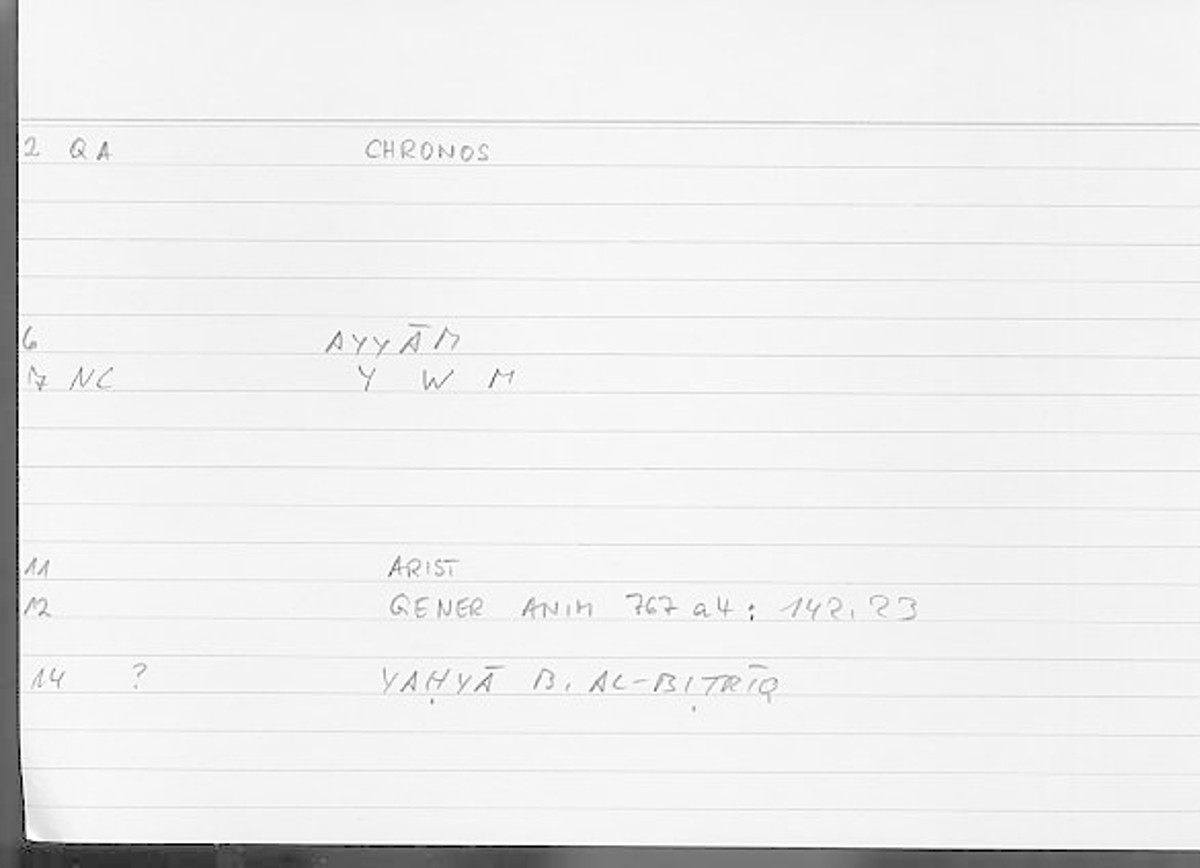 2 QA CHRONOS
6 AYYĀM
7 NC Y W M
11 ARIST
12 GENER ANIM 767 a4 : 142.23
14 ? YAḤYĀ B. AL-BIṬRĪQ